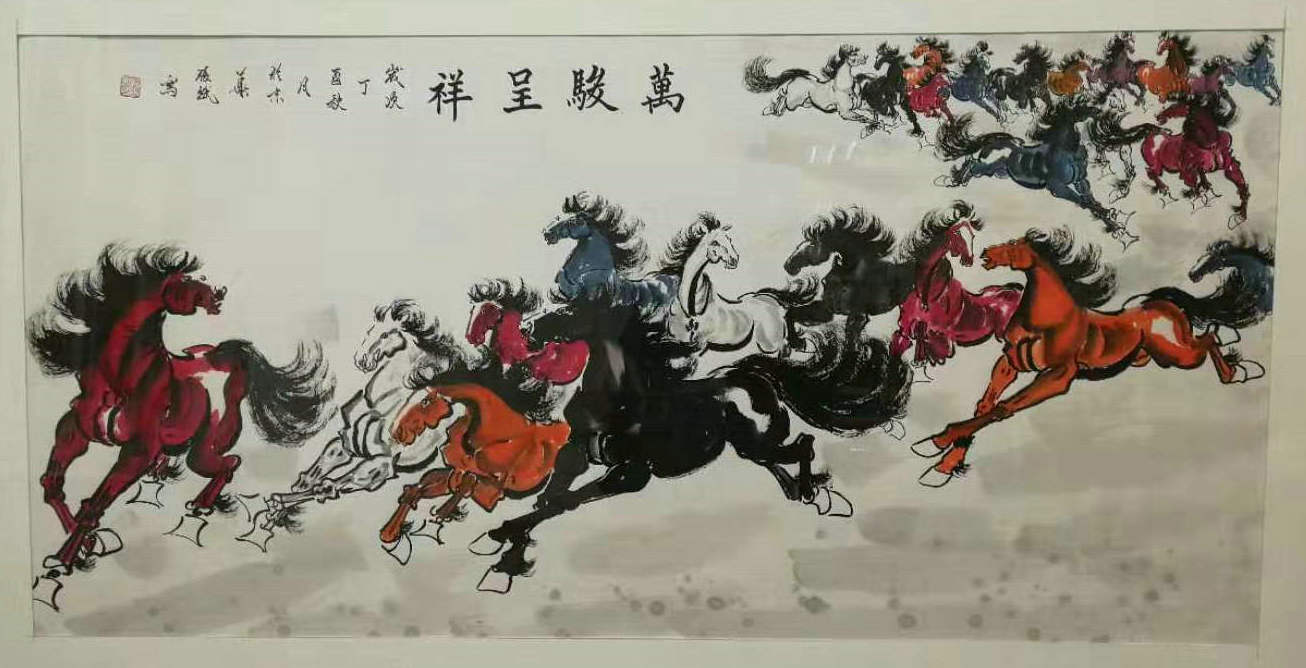 萬駿呈祥
歲次
丁
酉秋
月
於京
華
寫